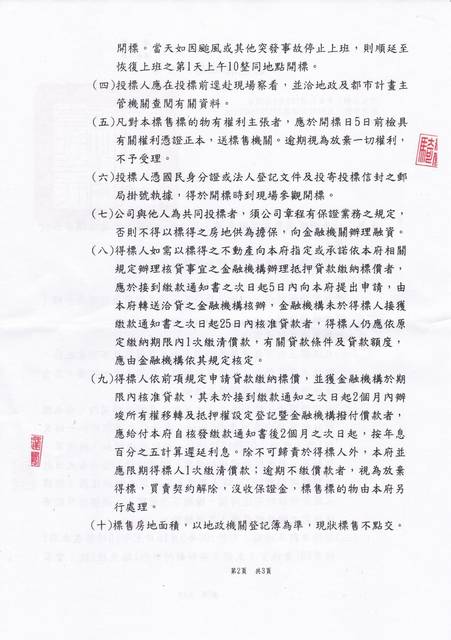 開標。當天如因颱風或其他突發事故停止上班，則順延至
恢復上班之第1天上午10整同地點開標。
(四)投標人應在投標前逕赴現場察看，並洽地政及都市計畫主
管機關查閱有關資料。
(五)凡對本標售標的物有權利主張者，應於開標日5日前檢具
有關權利憑證正本，送標售機關。逾期視為放棄一切權利，
不予受理。
(六)投標人憑國民身分證或法人登記文件及投寄投標信封之郵
局掛號執據，得於開標時到現場參觀開標。
(七)公司與他人為共同投標者，須公司章程有保證業務之規定，
否則不得以標得之房地供為擔保，向金融機關辦理融資。
(八)得標人如需以標得之不動產向本府指定或承諾依本府相關
規定辦理核貸事宜之金融機構辦理抵押貸款繳納標價者，
應於接到繳款通知書之次日起5日內向本府提出申請，由
本府轉送洽貸之金融機構核辦，金融機構未於得標人接獲
繳款通知書之次日起25日內核准貸款者，得標人仍應依原
定繳納期限內1次繳清價款，有關貸款條件及貸款額度，
應由金融機構依其規定核定。
(九)得標人依前項規定申請貸款繳納標價，並獲金融機構於期
限內核准貸款，其未於接到繳款通知之次日起2個月內辦
竣所有權移轉及抵押權設定登記暨金融機構撥付價款者，
應給付本府自核發繳款通知書後2個月之次日起，按年息
百分之五計算遲延利息。除不可歸責於得標人外，本府並
應限期得標人1次繳清價款；逾期不繳價款者，視為放棄
得標，買賣契約解除，沒收保證金，標售標的物由本府另
行處理。
(十)標售房地面積，以地政機關登記簿為準，現狀標售不點交。
第2頁 共3頁